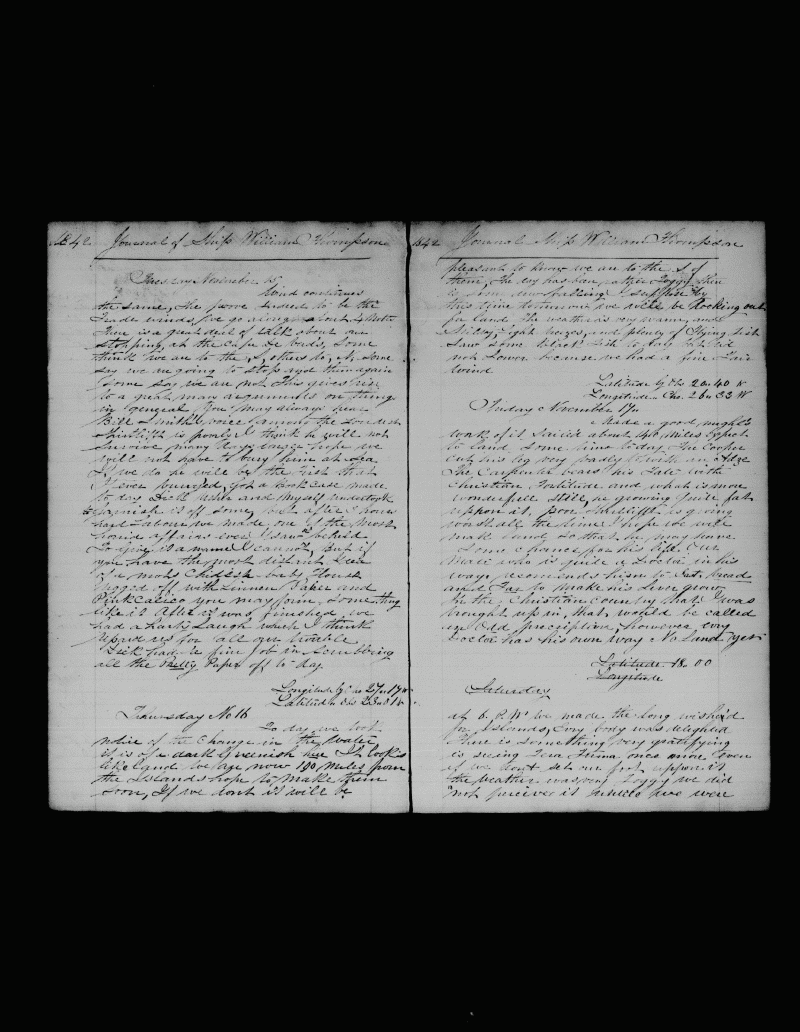 1842 Journal of Ship William Thompson
Tuesday November 15
Wind continues
the same, the prove indeed to be the
Trade winds, we go along about 4 knots
There is a great deal of talk about our
stopping, at the Cape De Verds, some
think we are to the S, others to, N. some
say we are going to stop and then again
some say we are not This gives rise
to a great many arguments on things
in general, You may always hear
Bill Smiths voice among the loudest
is poorly I think he will not
survive many days longer hope we
will not have to bury him at Sea
If we do he will be the first that
I ever buryed, got a Book case made
to day Dick White and myself undertook
to varnish it off some, but after 2 hours
hard Labour we made, one of the most
horrid affairs ever I saw beheld
To give it a name I cannot, But if
you have the most distant Idea
of a Childish baby House
rigged off with Linnen Paper and
Pink calico you may fine, some thing
like it After it was finished we
had a harty Laugh which I think
repaid us for all our trouble
Dick had a fine Job in scrubbing
all the Paper off to day
Longitude by Chr 27. 17 W
Latitude Obs 23. 01 N
Thursday No 16
To day we took
notice of the Change in the water
it is of a dark Greenish hue It looks
like land we are now 190 Miles from
the Islands hope to make them
soon, If we dont it will be
1842 Journal Ship William Thompson
pleasant to know we are to the S of
them, The day has been rather foggy then
is some dew falling I suppose by
this time tomorrow we will be Looking out
for land The weather is very warm, and
Sticky, light breezes, and plenty of Flying fish
Saw some black fish to day but did
not Lower because we had a fine Fair
Wind
Latitude by Obs 20. 40 N
Longitude Chr. 26. 33 W
Friday November 17
Made a good, nights
work of it Sailed about 140 Miles Expect
to land some time to day. The Cooper
cut his Leg very badly with an Adze
The Carpenter bears his Fate with
Christian Fortitude and what is more
wonderfull still, is growing quite fat
uppon it, poor is going
worst all the time I hope we will
make land so that he may have
some chance for his life. Our
Mate who is quite a Doctor in his
way, recomends him to Eat, bread
and Tar to make his Liver grow
In the Christian country that I was
brought up in, that, would be called
an Odd prescription, however every
Doctor has his own way No Land yet
Latitude 18. 00
Longitude
Saturday
at 6. P. M we made the long wished
for Islands, Every body was delighted
There is something very gratifying
in seeing Terra Firma once more even
if we don't set our foot uppon it
the weather was very foggy we did
not perceive it untill we were